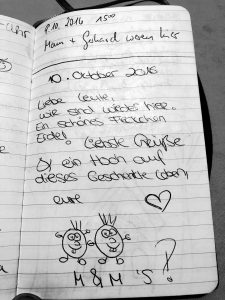 8.10.2016 15⁰⁰
Mam + Gerhard waren hier
10. Oktober 2016
Liebe Leute,
wir sind wieder hier.
Ein schönes Fleckchen
Erde! Liebste Grüße
& ein Hoch auf
dieses Geschenkte Leben,
eure
M & M'S!